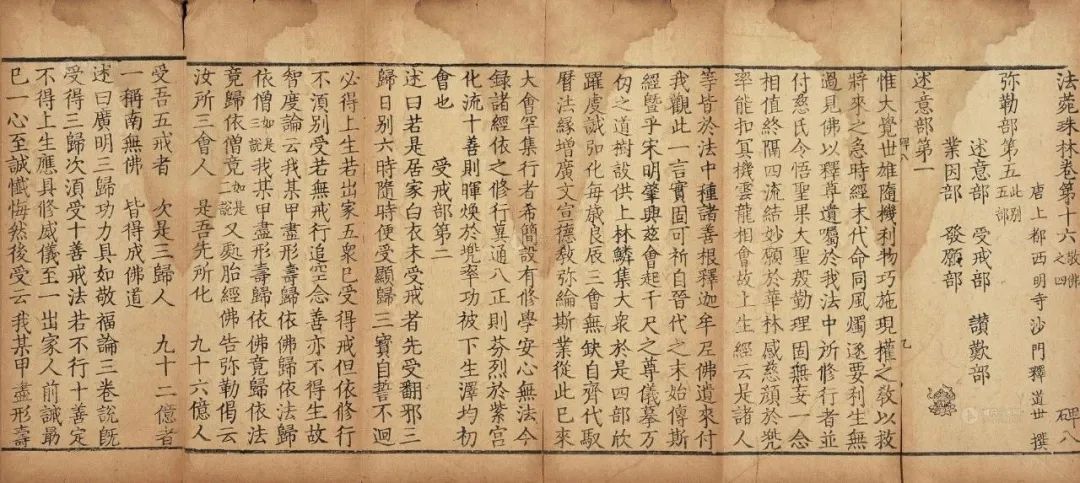 法苑珠林卷第十六 敬佛之四 碑八
唐上都西明寺沙門釋道世 撰
弥勒部第五 此別五部
述意部 受戒部 讃歎部
業因部 發願部
述意部第一
碑八 九
惟大覺世雄隨機利物巧施現權之教以救
將來之急時經末代命同風燭逐要利生無
過見佛以釋尊遺囑於我法中所修行者並
付慈氏令悟聖果大聖殷勤理固無妄一念
相值終隔四流結妙願於華林感慈顏於兠
率能扣冥機雲龍相會故上生經云是諸人
等皆於法中種諸善根釋迦牟尼佛遣來付
我觀此一言實固可祈自晉代之末始傳斯
經暨乎宋明肇興兹會起千尺之尊儀摹万
仞之道樹設供上林鱗集大衆於是四部欣
躍虔誠弘化每歲良辰三會無缺自齊代馭
曆法緣增廣文宣德教弥綸斯業從此已來
大會罕集行者希簡設有修學安心無法今
録諸經依之修行冥通八正則芬烈於紫宫
化流十善則暉煥於兠率功被下生澤均初
會也 受戒部第二
述曰若是居家白衣未受戒者先受翻邪三
歸日別六時隨時便受顯歸三寳自誓不迴
必得上生若出家五衆已受得戒但依修行
不湏別受若無戒行追空念善亦不得生故
智度論云我某甲盡形壽歸依佛歸依法歸
依僧如是三說我某甲盡形壽歸依佛竟歸依法
竟歸依僧竟如是二說又處胎經佛告弥勒偈云
汝所三會人 是吾先所化 九十六億人
受吾五戒者 次是三歸人 九十二億者
一稱南無佛 皆得成佛道
述曰廣明三歸功力具如敬福論三卷說旣
受得三歸次湏受十善戒法若不行十善定
不得上生應具修威儀至一出家人前誠勗
已一心至誠懺悔然後受云我某甲盡形壽